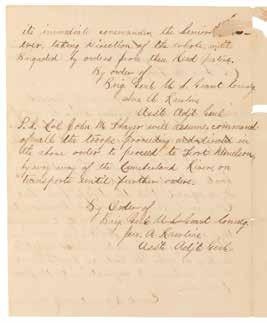 its immediate commander the Senior
taking direction of the whole, until
Brigaded by orders from these Head
By order of
Brig Genl U. S. Grant Comdg
Jno A. Rawlins
Asst Adjt Genl
P.S. Col John M. Thayer will assume command
of all the troops
the above order to proceed to Fort Henderson,
by way of the Cumberland River, on
transports until further orders.
By Order of
Brig Genl U. S. Grant Comdg.
Jno. A. Rawlins
Asst Adjt Genl.